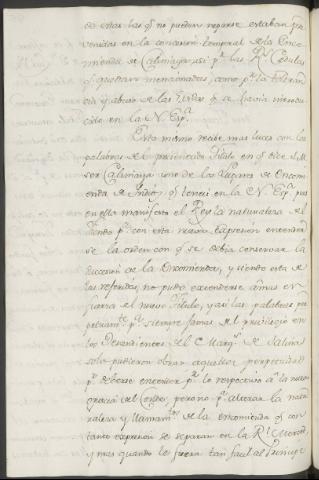 de estas las qᵉ no pueden reparse estaban pre
venidas en la concesion temporal de la Enco
mienda de Calimaya asi pʳ las Rˢ Cedulas
qᵉ quedan mencionadas, como pʳ la toleran
cia y abuso de las Vidas qᵉ se havia introdu
cido en la N. Espᵃ.
Esto mismo recibe mas luces con las
palabras del precitado Titulo en qᵉ dice S.M.
ser Calimaya uno de los Lugares de Encom
ienda de Indios qᵉ teneis en la N. Espᵃ pues
en ello manifestó el Rey la naturaleza del
Feudo pʳ con esta misma expresion entender
se la orden con qᵉ se debia conservar la
succesion de la Encomienda, y siendo esta de
las referidas, no pudo extenderse a mas en
fuerza del nuevo Titulo, y asi las palabras per
petuamᵗᵉ pᵃ siempre jamas del privilegio en
los Descendientes del C. Marqˢ de Salina
solo pudieron obrar aquella perpetuidad
pᵃ deberse entender pʳ lo respectivo a la nueva
gracia del Condᵒ, pero no pᵃ alterar la natu
raleza y llamamᵗᵒˢ de la encomienda qᵉ con
tanta expresion se separan en la Rˡ Merced
y mas quando le fuera tan facil al Principe